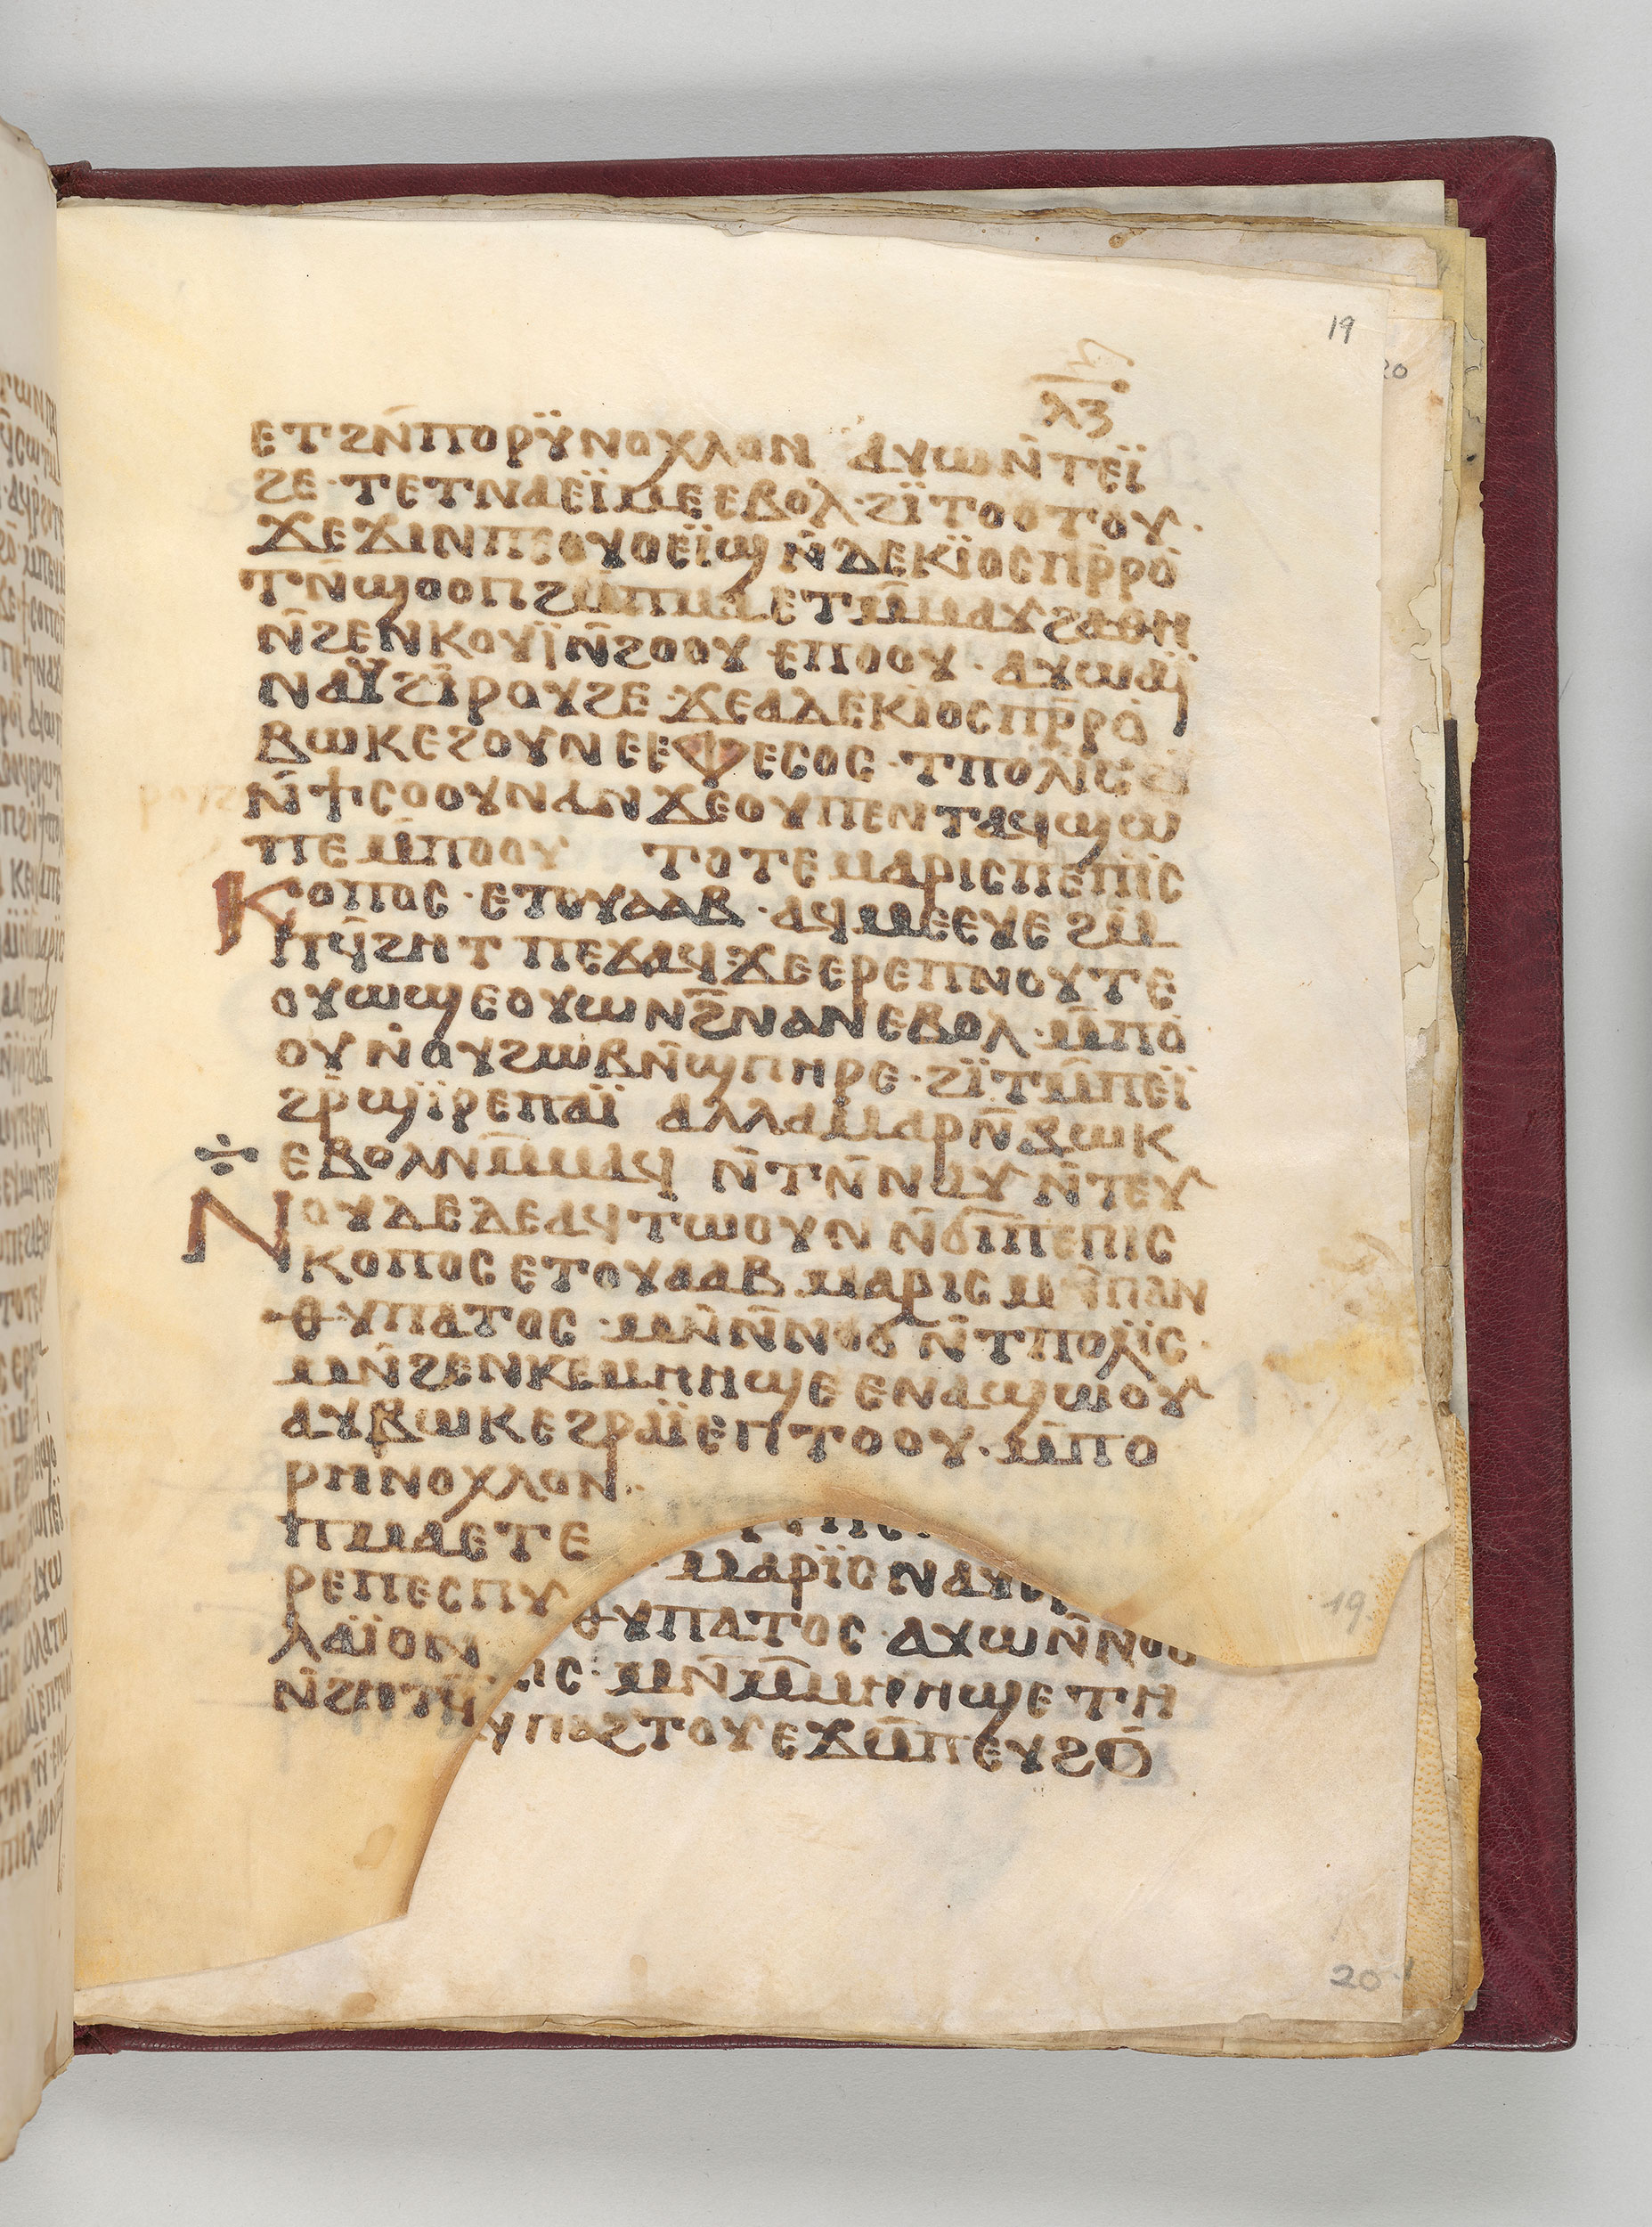 19
20
ⲗⲍ
ⲉⲧϩⲛ̄ⲡⲟⲣⲩ̈ⲛⲟⲭⲗⲟⲛ ⲁⲩⲱⲛ̄ⲧⲉⲓ̈
ϩⲉ· ⲧⲉⲧⲛⲁⲉⲓ̈ⲙⲉⲉⲃⲟⲗ· ϩⲓ̈ⲧⲟⲟⲧⲟⲩ·
ϫⲉϫⲓⲛⲡⲉⲟⲩⲟⲉⲓ̈ϣⲛ̄ⲇⲉⲕⲓ̈ⲟⲥⲡⲣ̄ⲣⲟ
ⲧⲛ̄ϣⲟⲟⲡϩⲙ̄ⲡⲙⲁⲉⲧⲙ̄ⲙⲁⲩϩⲁⲑⲏ
ⲛ̄ϩⲉⲛⲕⲟⲩⲓ̈ⲛ̄ϩⲟⲟⲩⲉⲡⲟⲟⲩ· ⲁⲩⲱⲁⲓ̈
ⲛⲁⲩϩⲓ̈ⲣⲟⲩϩⲉ· ϫⲉⲁⲇⲉⲕⲓⲟⲥⲡⲣ̄ⲣⲟ
ⲃⲱⲕⲉϩⲟⲩⲛⲉⲉⲫⲉⲥⲟⲥ· ⲧⲡⲟⲗⲓⲥ
ⲛ̄ϯⲥⲟⲟⲩⲛⲁⲛϫⲉⲟⲩⲡⲉⲛⲧⲁϥϣⲱ
ⲡⲉⲙ̄ⲡⲟⲟⲩ ⲧⲟⲧⲉⲙⲁⲣⲓⲥⲡⲉⲡⲓ̈ⲥ
ⲕⲟⲡⲟⲥ· ⲉⲧⲟⲩⲁⲁⲃ· ⲁϥⲙⲉⲉⲩⲉϩⲙ̄
ⲡϥ̄ϩⲏⲧ ⲡⲉϫⲁϥ· ϫⲉⲉⲣⲉⲡⲛⲟⲩⲧⲉ
ⲟⲩⲱϣⲉⲟⲩⲱⲛϩ̄ⲛⲁⲛⲉⲃⲟⲗ· ⲙ̄ⲡⲟ
ⲟⲩⲛ̄ⲟⲩϩⲱⲃⲛ̄ϣⲡⲏⲣⲉ· ϩⲓ̈ⲧⲙ̄ⲡⲉⲓ̈
ϩⲣ̄ϣⲓ̈ⲣⲉⲡⲁⲓ̈ ⲁⲗⲗⲁⲙⲁⲣⲛ̄ϫⲱⲕ
ⲉⲃⲟⲗⲛⲙ̄ⲙⲁϥ ⲛ̄ⲧⲛ̄ⲛⲁⲩ ⲛ̄ⲧⲉⲩ
ⲛⲟⲩⲇⲉⲇⲉⲁϥⲧⲱⲟⲩⲛ ⲛ̄ϭⲓⲡⲉⲡⲓⲥ
ⲕⲟⲡⲟⲥⲉⲧⲟⲩⲁⲁⲃ ⲙⲁⲣⲓⲥ ⲙⲛ̄ⲡⲁⲛ
ⲑⲩⲡⲁⲧⲟⲥ· ⲙⲛ̄ⲛ̄ⲛⲟϭⲛ̄ⲧⲡⲟⲗⲓ̈ⲥ·
ⲙⲛ̄ϩⲉⲛⲕⲉⲙⲏⲏϣⲉⲉⲛⲁϣⲱⲟⲩ
ⲁⲩⲃⲱⲕⲉϩⲣⲁⲓ̈ⲉⲡⲧⲟⲟⲩ· ⲙ̄ⲡⲟ
ⲣⲏⲛⲟⲭⲗⲟⲛ·
ⲡⲙⲁⲉⲧⲉ
ⲣⲉⲡⲉⲥⲡⲩ ⲙⲁⲣⲓ̈ⲥⲛⲁⲩ
ⲗⲁⲓ̈ⲟⲛ ⲑⲩⲡⲁⲧⲟⲥ· ⲁⲩⲱⲛ̄ⲛⲟϭ
ⲛ̄ϩⲏⲧϥ̄ ⲓⲥ· ⲙⲛ̄ⲙ̄ⲙⲏⲏϣⲉⲧⲏ
ⲩⲡⲁϩⲧⲟⲩⲉϫⲙ̄ⲡⲉⲩϩⲟ̄
19
20